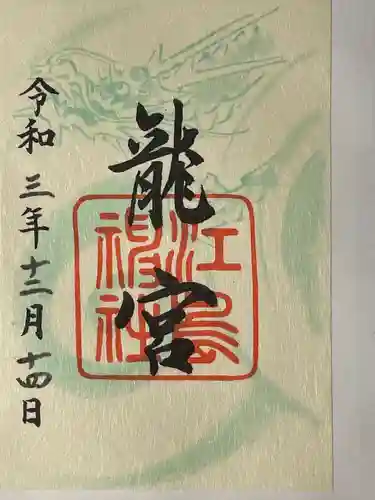 龍宮
江島神社
令和三年十二月十四日